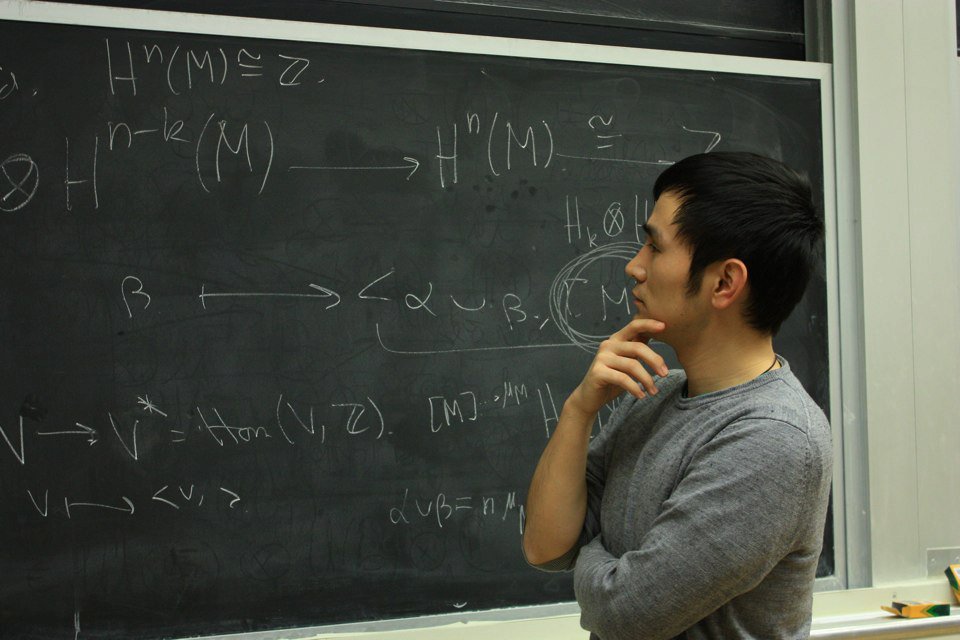 d. Hⁿ(M) ≅ ℤ.
⊗ Hⁿ⁻ᵏ(M) ⟶ Hⁿ(M) ⟶≅ ℤ
Hₖ ⊗ H
β ⟼ < α ∪ β, [M
V ⟶ V* = Hom(V, ℤ). [M] ⇢ μ_M H
v ⟼ <v, >.
α∪β = n μ